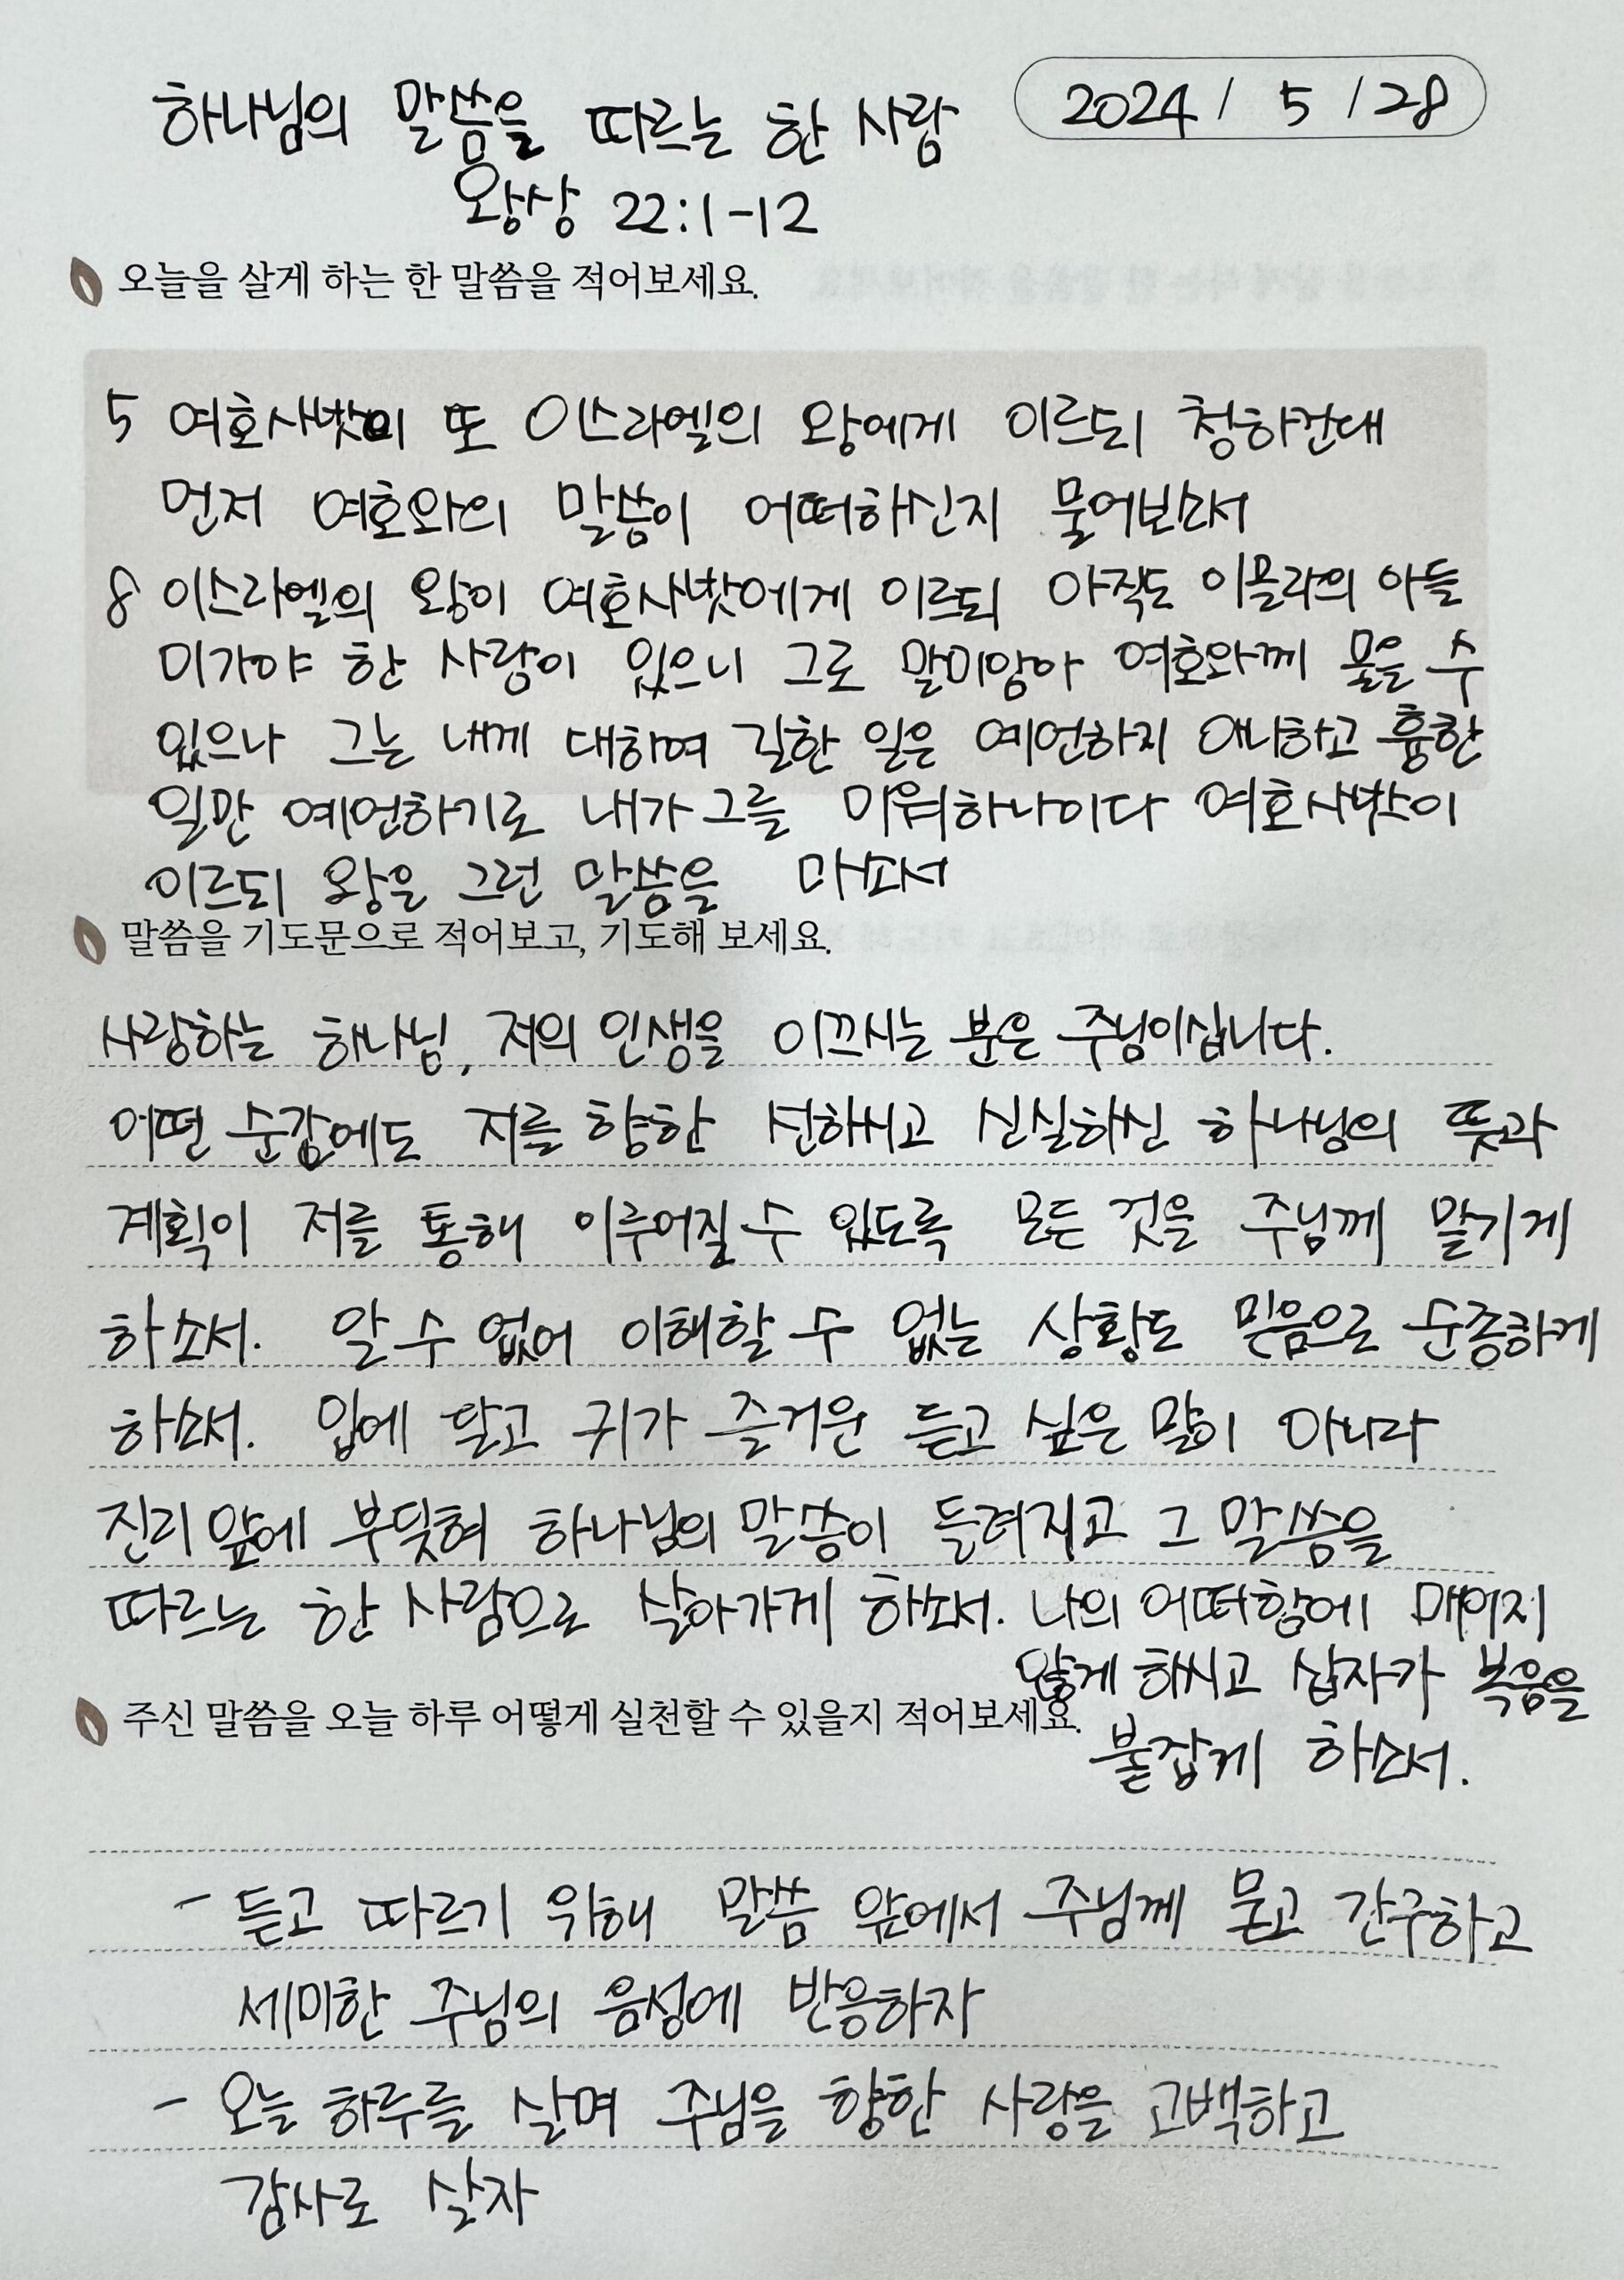 하나님의 말씀을 따르는 한 사람
2024 / 5 / 28
왕상 22:1-12
오늘을 살게 하는 한 말씀을 적어보세요.
5 여호사밧이 또 이스라엘의 왕에게 이르되 청하건대
먼저 여호와의 말씀이 어떠하신지 물어보소서
8 이스라엘의 왕이 여호사밧에게 이르되 아직도 이믈라의 아들
미가야 한 사람이 있으니 그로 말미암아 여호와께 물을 수
있으나 그는 내게 대하여 길한 일은 예언하지 아니하고 흉한
일만 예언하기로 내가 그를 미워하나이다 여호사밧이
이르되 왕은 그런 말씀을 마소서
말씀을 기도문으로 적어보고, 기도해 보세요.
사랑하는 하나님, 저의 인생을 이끄시는 분은 주님이십니다.
어떤 순간에도 저를 향한 선하시고 신실하신 하나님의 뜻과
계획이 저를 통해 이루어질 수 있도록 모든 것을 주님께 맡기게
하소서. 알 수 없어 이해할 수 없는 상황도 믿음으로 순종하게
하소서. 입에 달고 귀가 즐거운 듣고 싶은 말이 아니라
진리 앞에 부딪혀 하나님의 말씀이 들려지고 그 말씀을
따르는 한 사람으로 살아가게 하소서. 나의 어떠함에 매이지
않게 하시고 십자가 복음을
주신 말씀을 오늘 하루 어떻게 실천할 수 있을지 적어보세요.
붙잡게 하소서.
- 듣고 따르기 위해 말씀 앞에서 주님께 묻고 간구하고
세미한 주님의 음성에 반응하자
- 오늘 하루를 살며 주님을 향한 사랑을 고백하고
감사로 살자